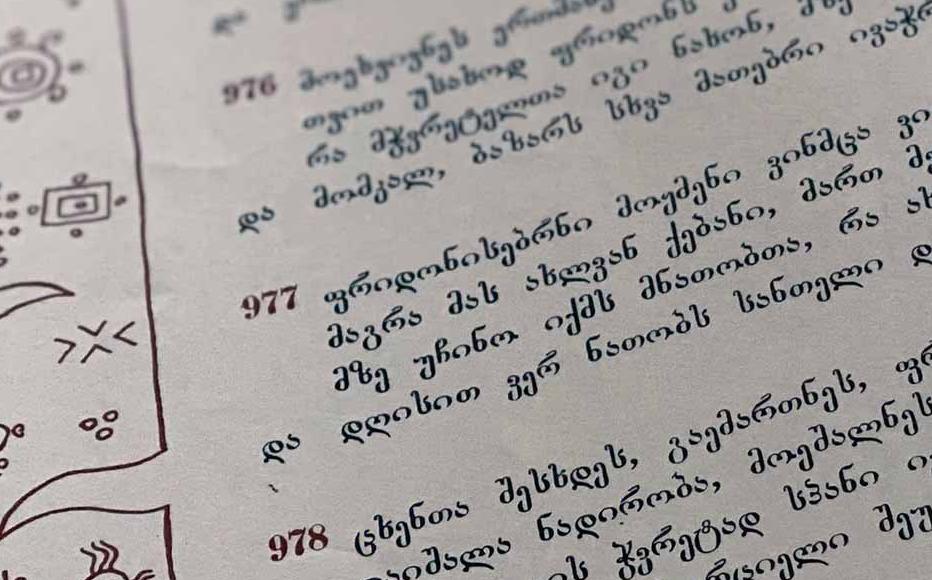 და
976 მოეხვივნეს ერთმანე
თვით უსახოდ ფრიდონს
რა მჭვრეტელთა იგი ნახონ,
და მომკალ, ბაზარს სხვა მათებრი ივაჭრ
977 ფრიდონისებრნი მოყმენი ვინმცა ვი
მაგრა მას ახლვან ქებანი, მართ მ
მზე უჩინო იქმს მნათობთა, რა ახ
და დღისით ვერ ნათობს სანთელი დ
978 ცხენთა შესხდეს, გაემართნეს, ფრ
ნადირობა, მოეშალნეს
ჭვრეტად სპანი
შეუ